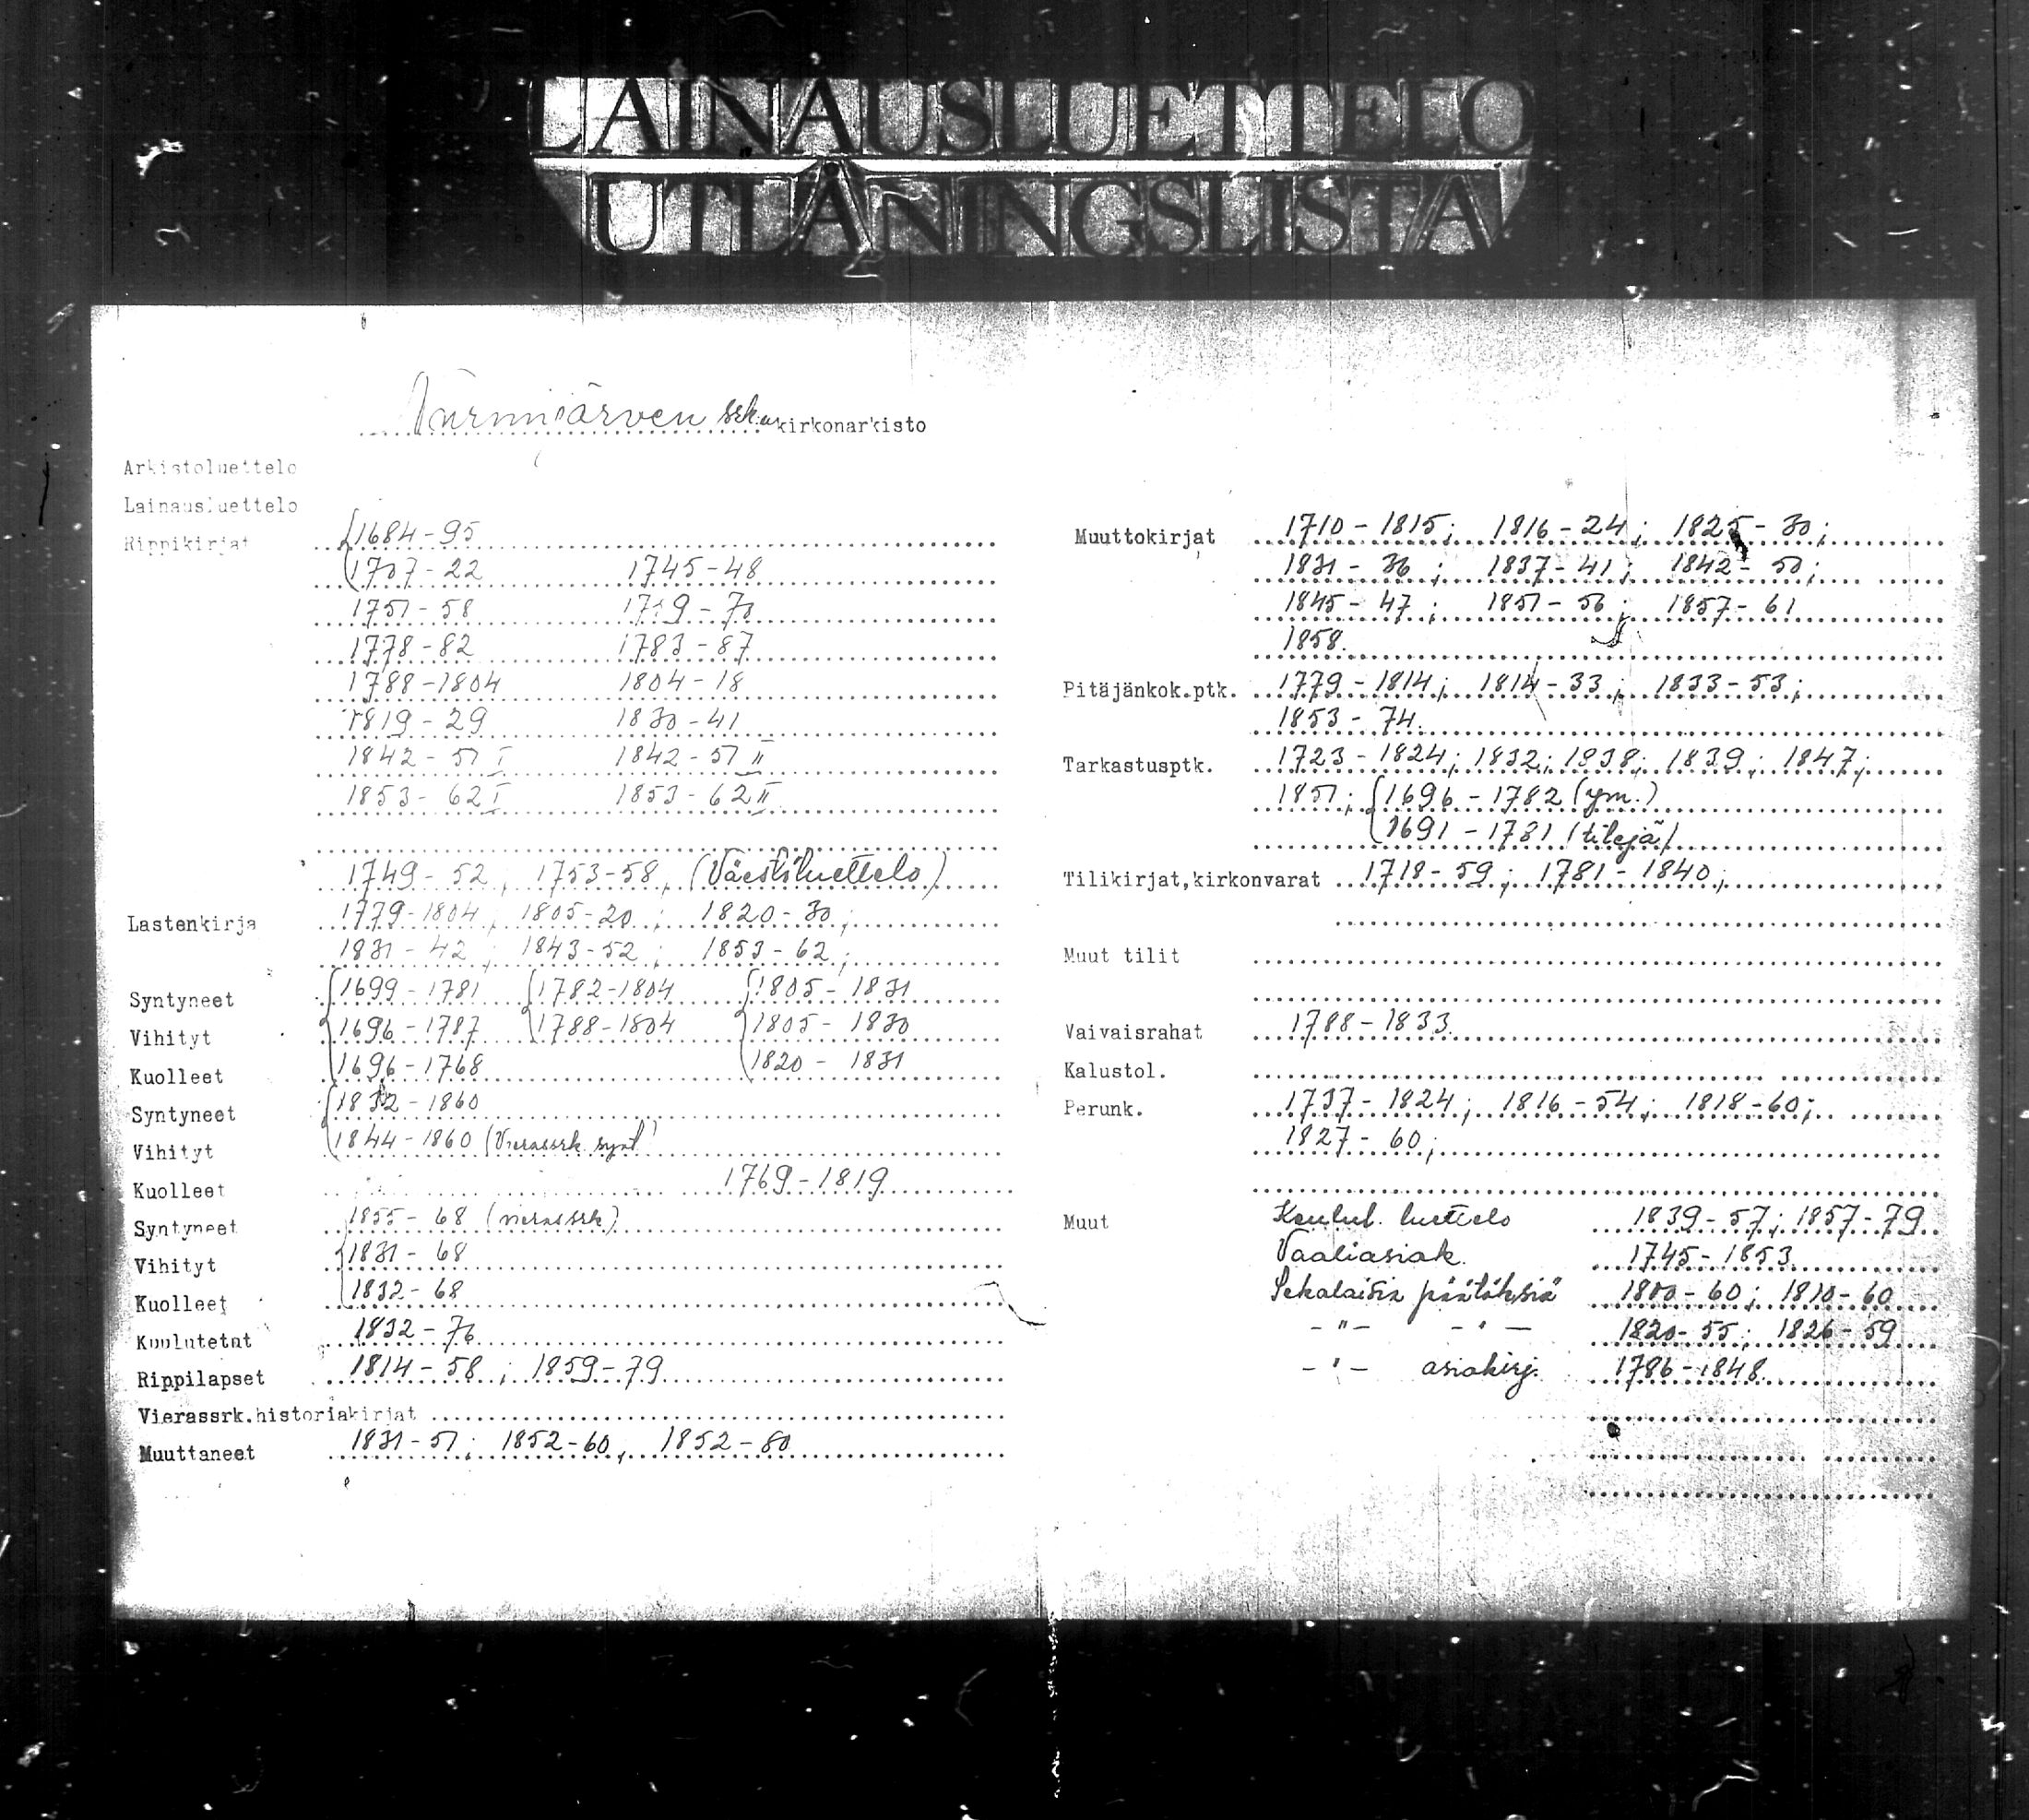 LAINAUSLUETTELO
UTLÅNINGSLISTA
Nurmijärven srk:n kirkonarkisto
Arkistoluettelo
Lainausluettelo
Rippikirjat 1684-95
1707-22 1745-48
1751-58 1759-70
1778-82 1783-87
1788-1804 1804-18
1819-29 1830-41
1842-51 I 1842-51 II
1853-62 I 1853-62 II
1749-52, 1753-58, (Väestöluettelo)
Lastenkirja 1779-1804, 1805-20; 1820-30;
1831-42; 1843-52; 1853-62;
Syntyneet 1699-1781 1782-1804 1805-1831
Vihityt 1696-1787 1788-1804 1805-1830
Kuolleet 1696-1768 1820-1831
Syntyneet 1832-1860
Vihityt 1844-1860 (Vierassrk. synt)
Kuolleet 1769-1819
Syntyneet 1855-68 (vierassrk)
Vihityt 1831-68
Kuolleet 1832-68
Kuulutetut 1832-76
Rippilapset 1814-58; 1859-79
Vierassrk.historiakirjat
Muuttaneet 1831-51; 1852-60, 1852-80
Muuttokirjat 1710-1815; 1816-24; 1825-30;
1831-36; 1837-41; 1842-50;
1845-47; 1851-56; 1857-61
1858.
Pitäjänkok.ptk. 1779-1814; 1814-33; 1833-53;
1853-74.
Tarkastusptk. 1723-1824; 1832; 1838; 1839; 1847;
1851; 1696-1782 (ym.)
1691-1781 (tilejä)
Tilikirjat,kirkonvarat 1718-59; 1781-1840;
Muut tilit
Vaivaisrahat 1788-1833.
Kalustol.
Perunk. 1737-1824; 1816-54; 1818-60;
1827-60;
Muut Kuulut. luettelo 1839-57; 1857-79
Vaaliasiak. 1745-1853.
Sekalaisia päätöksiä 1800-60; 1810-60
-"- -"- 1820-55; 1826-59
-"- asiakirj. 1786-1848.